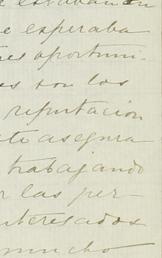 e esperaba
es oportuni-
es son los
reputacion
te asegura
trabajando
r las per-
nteresados
mucho